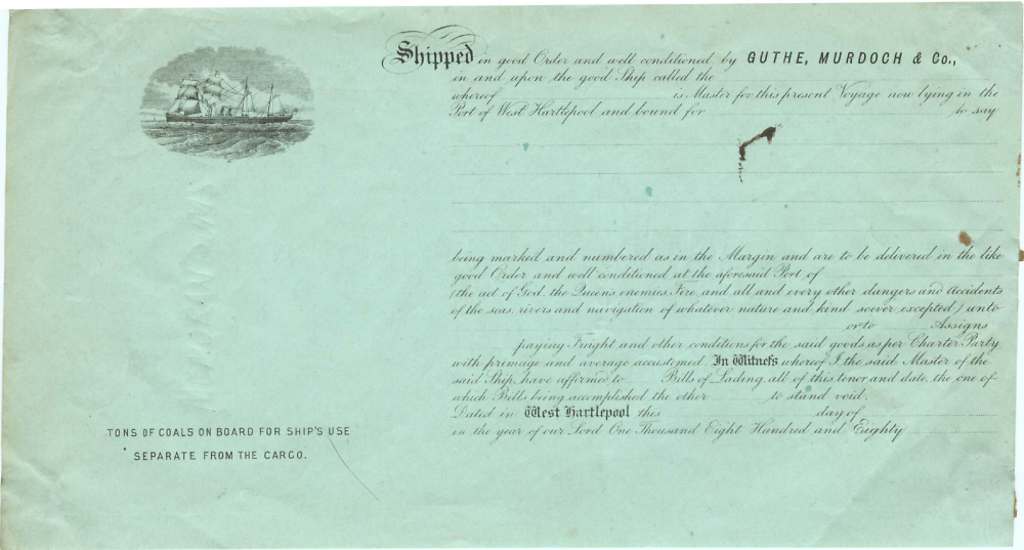 Shipped in good Order and well conditioned by GUTHE, MURDOCH & Co.,
in and upon the good Ship called the
whereof is Master for this present Voyage now lying in the
Port of West Hartlepool and bound for to say
being marked and numbered as in the Margin and are to be delivered in the like
good Order and well conditioned at the aforesaid Port of
(the act of God, the Queens enemies Fire, and all and every other dangers and Accidents
of the seas, rivers and navigation of whatever nature and kind soever excepted) unto
or to Assigns
paying Freight and other conditions for the said goods as per Charter Party
with primage and average accustomed. In Witness whereof I the said Master of the
said Ship, have affirmed to Bills of Lading, all of this tenor and date, the one of
which Bills being accomplished the other to stand void.
Dated in West Hartlepool this day of
in the year of our Lord One Thousand Eight Hundred and Eighty
TONS OF COALS ON BOARD FOR SHIP'S USE
SEPARATE FROM THE CARGO.